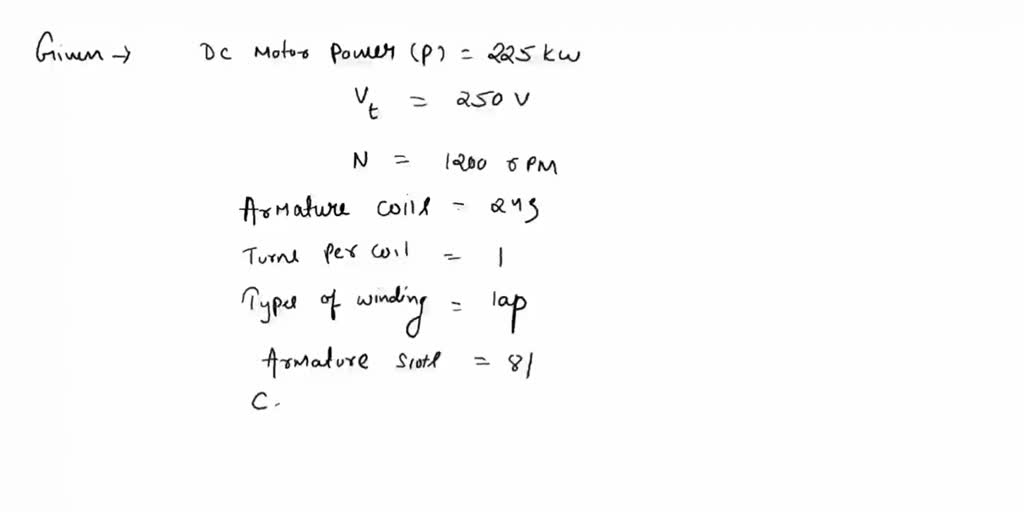 Given → DC Motor Power (P) = 225 kW
Vt = 250 V
N = 1200 rPM
Armature coils = 243
Turns per coil = 1
Types of winding = lap
Armature slots = 81
C.